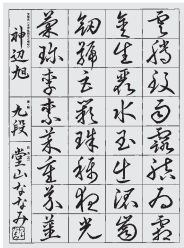 雲騰致雨露結為霜
金生麗水玉出崑崗
劔號巨闕珠稱夜光
菓珎李柰菜重芥薑
神辺旭 九段 堂山ななみ